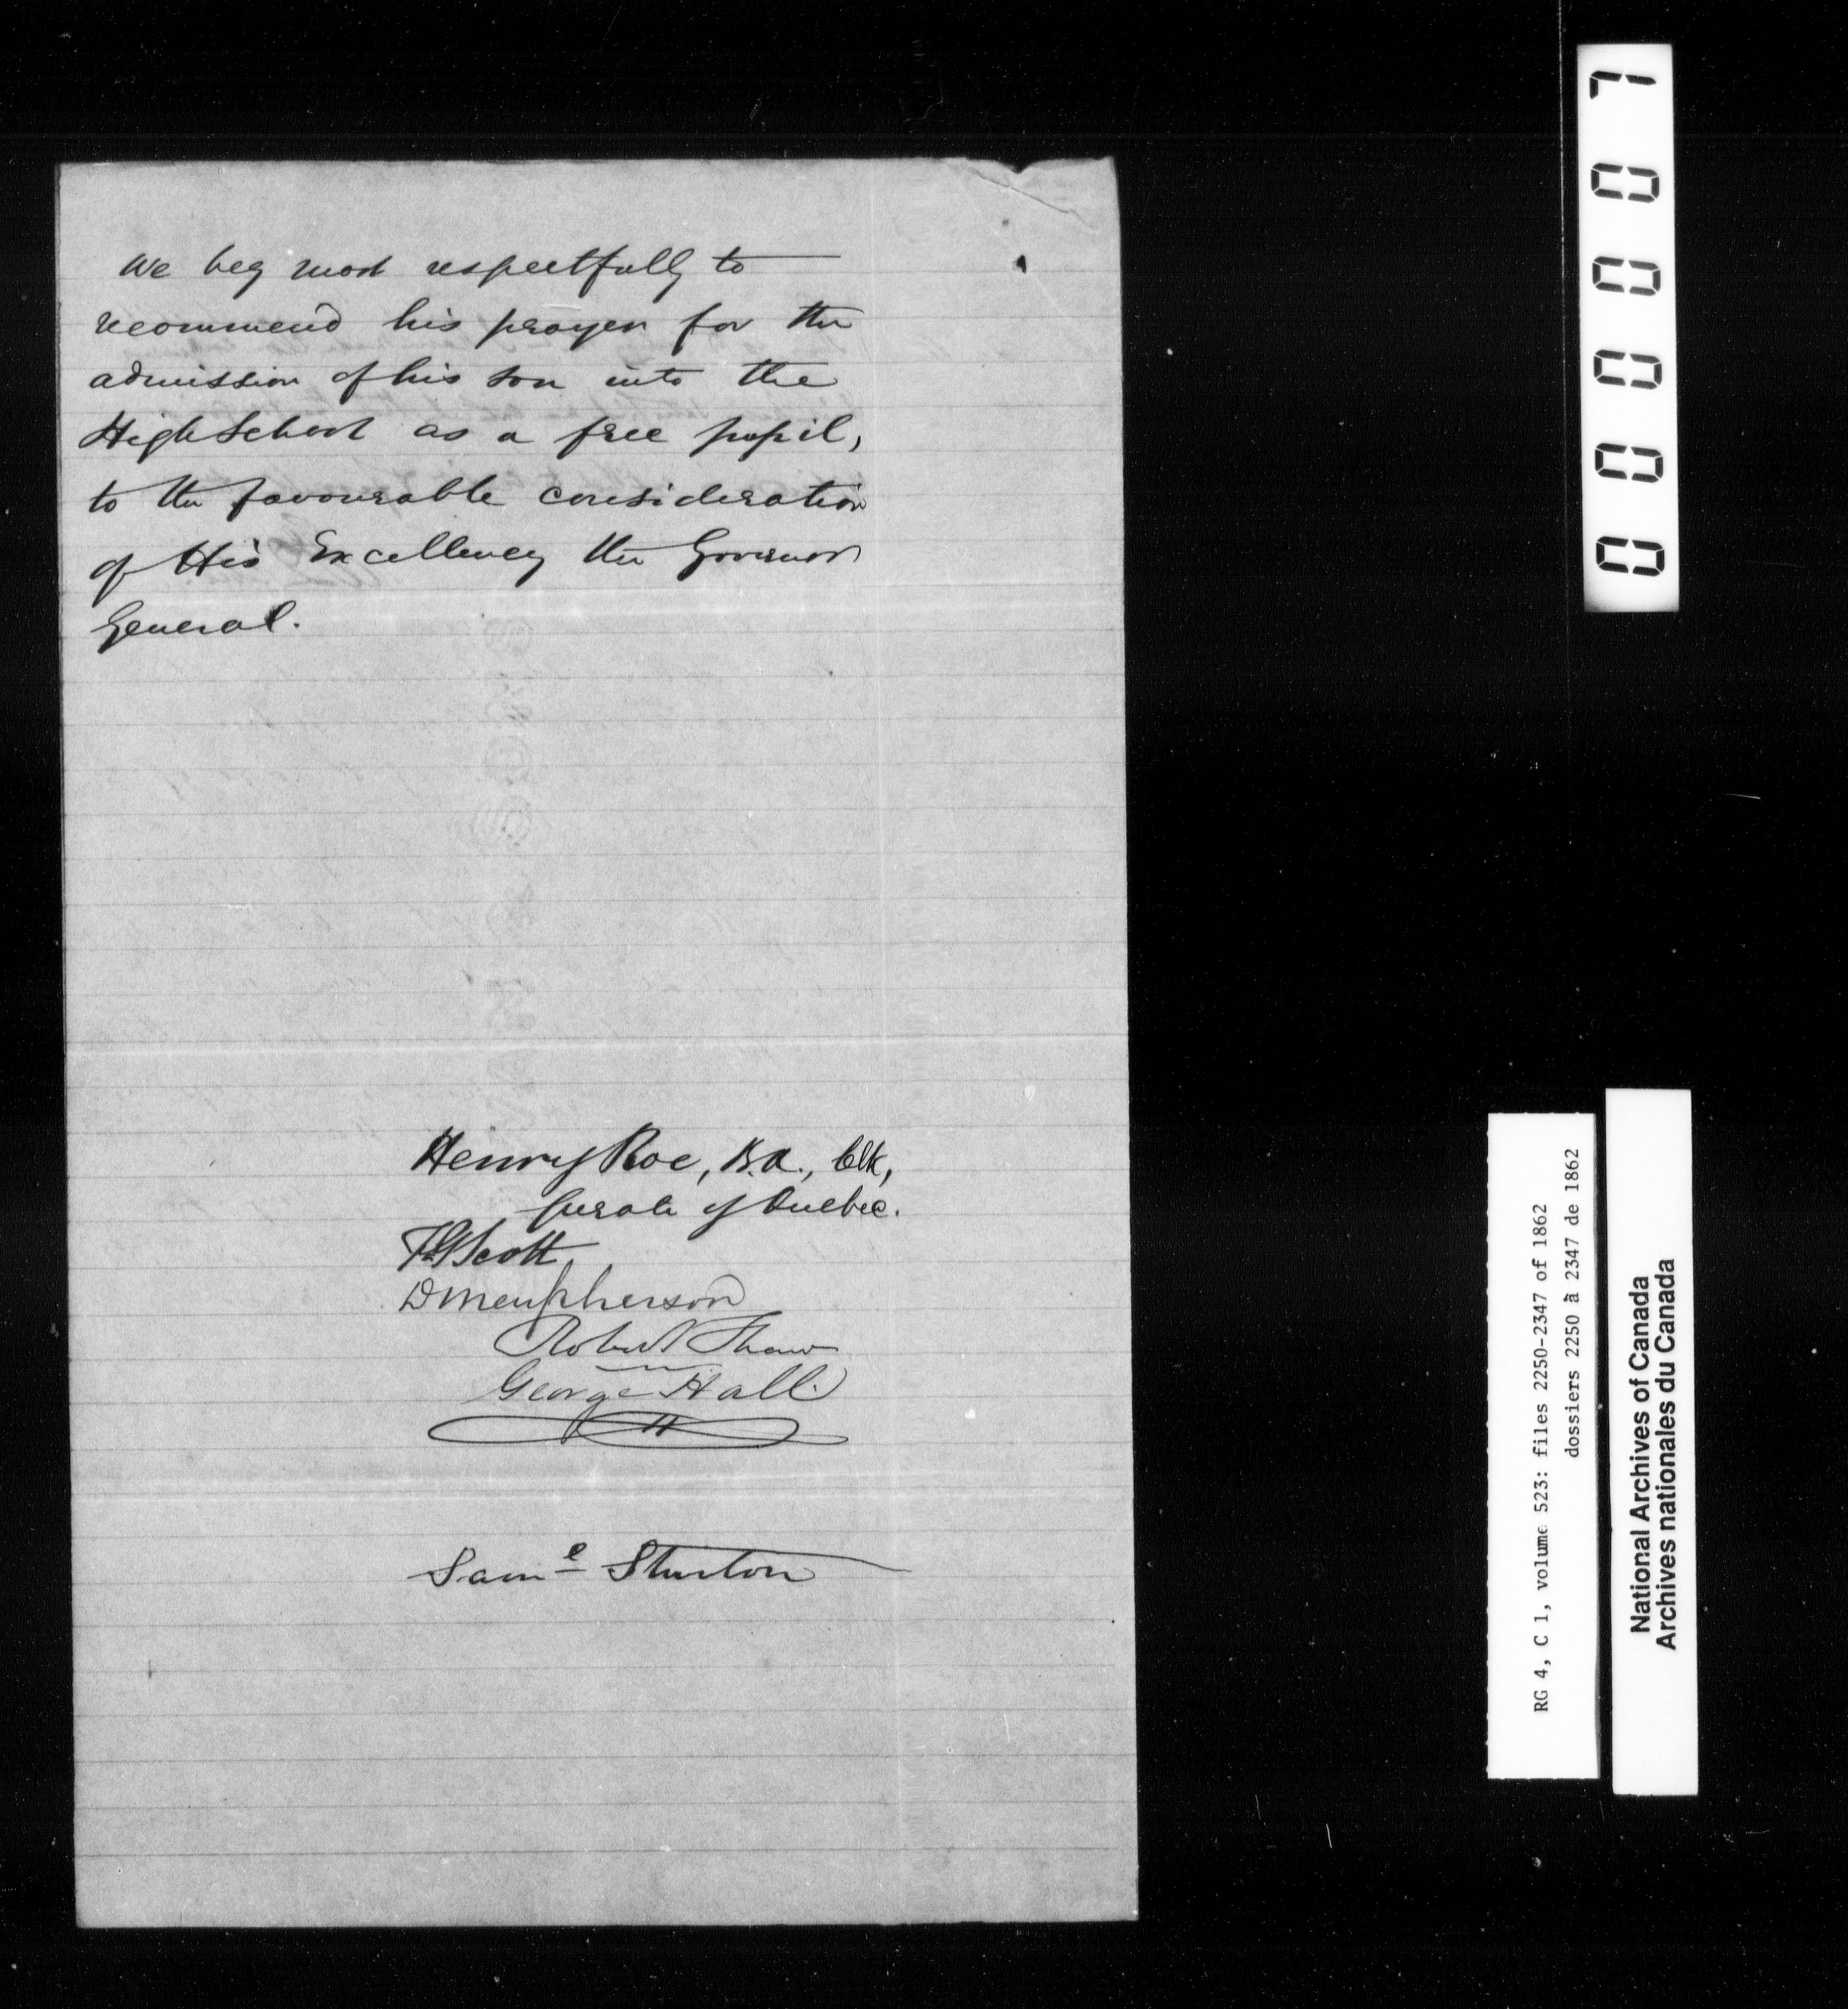 We beg most respectfully to
recommend his prayer for the
admission of his son into the
High School as a free pupil,
to the favourable consideration
of His Excellency the Governor
General.
Henry Roe, B.A., Clk,
Curate of Quebec.
Scott
Robert Shaw
George Hall
H
Saml
000007
RG 4, C 1, volume 523: files 2250-2347 of 1862
dossiers 2250 à 2347 de 1862
National Archives of Canada
Archives nationales du Canada